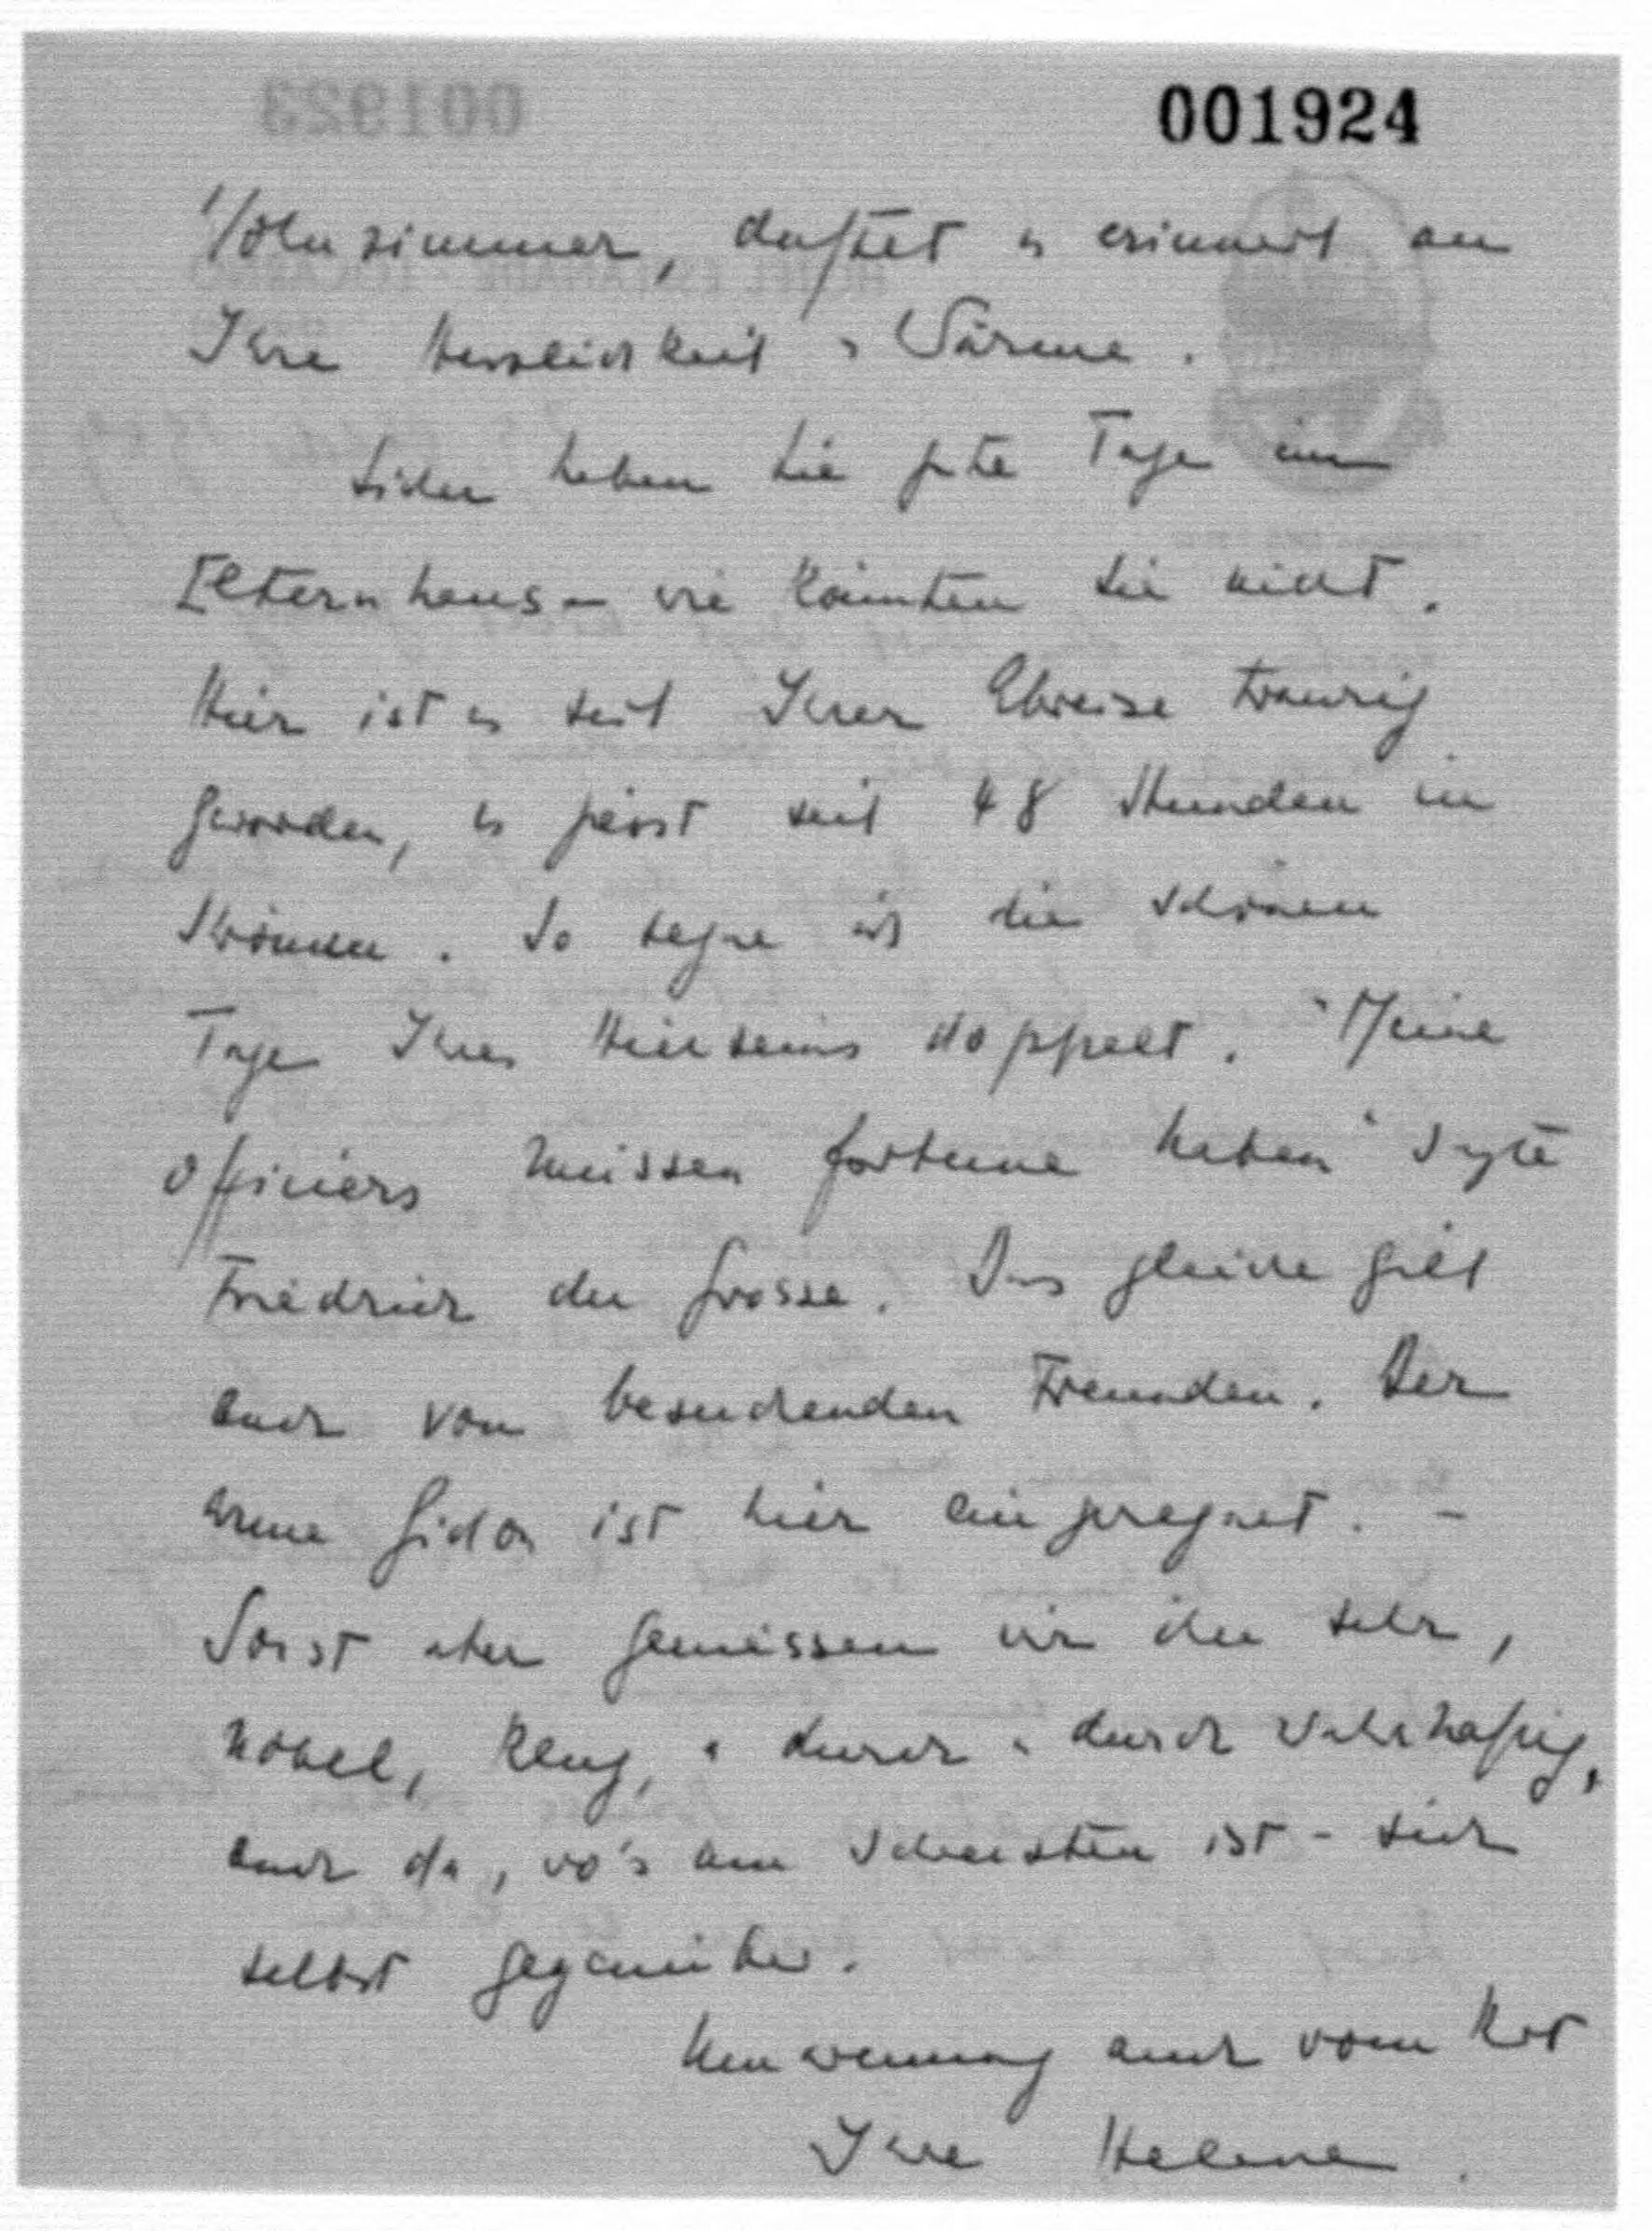 001924
Wohnzimmer, duftet u erinnert an
Ihre Herzlichkeit u Wärme.
Sicher haben Sie gute Tage im
Elternhaus – wie könnten Sie nicht.
Hier ist es seit Ihrer Abreise traurig
geworden, es giesst seit 48 Stunden in
Strömen. So segne ich die schönen
Tage Ihres Hierseins doppelt. "Meine
Officiers müssen fortune haben" sagte
Friedrich der Grosse. Das gleiche gilt
auch von besuchenden Freunden. Der
arme Gidon ist hier eingeregnet. –
Sonst aber geniessen wir ihn sehr,
nobel, klug, u durch u durch wahrhaftig,
auch da, wo's am schwersten ist – sich
selbst gegenüber.
auch vom
Ihre Helene.